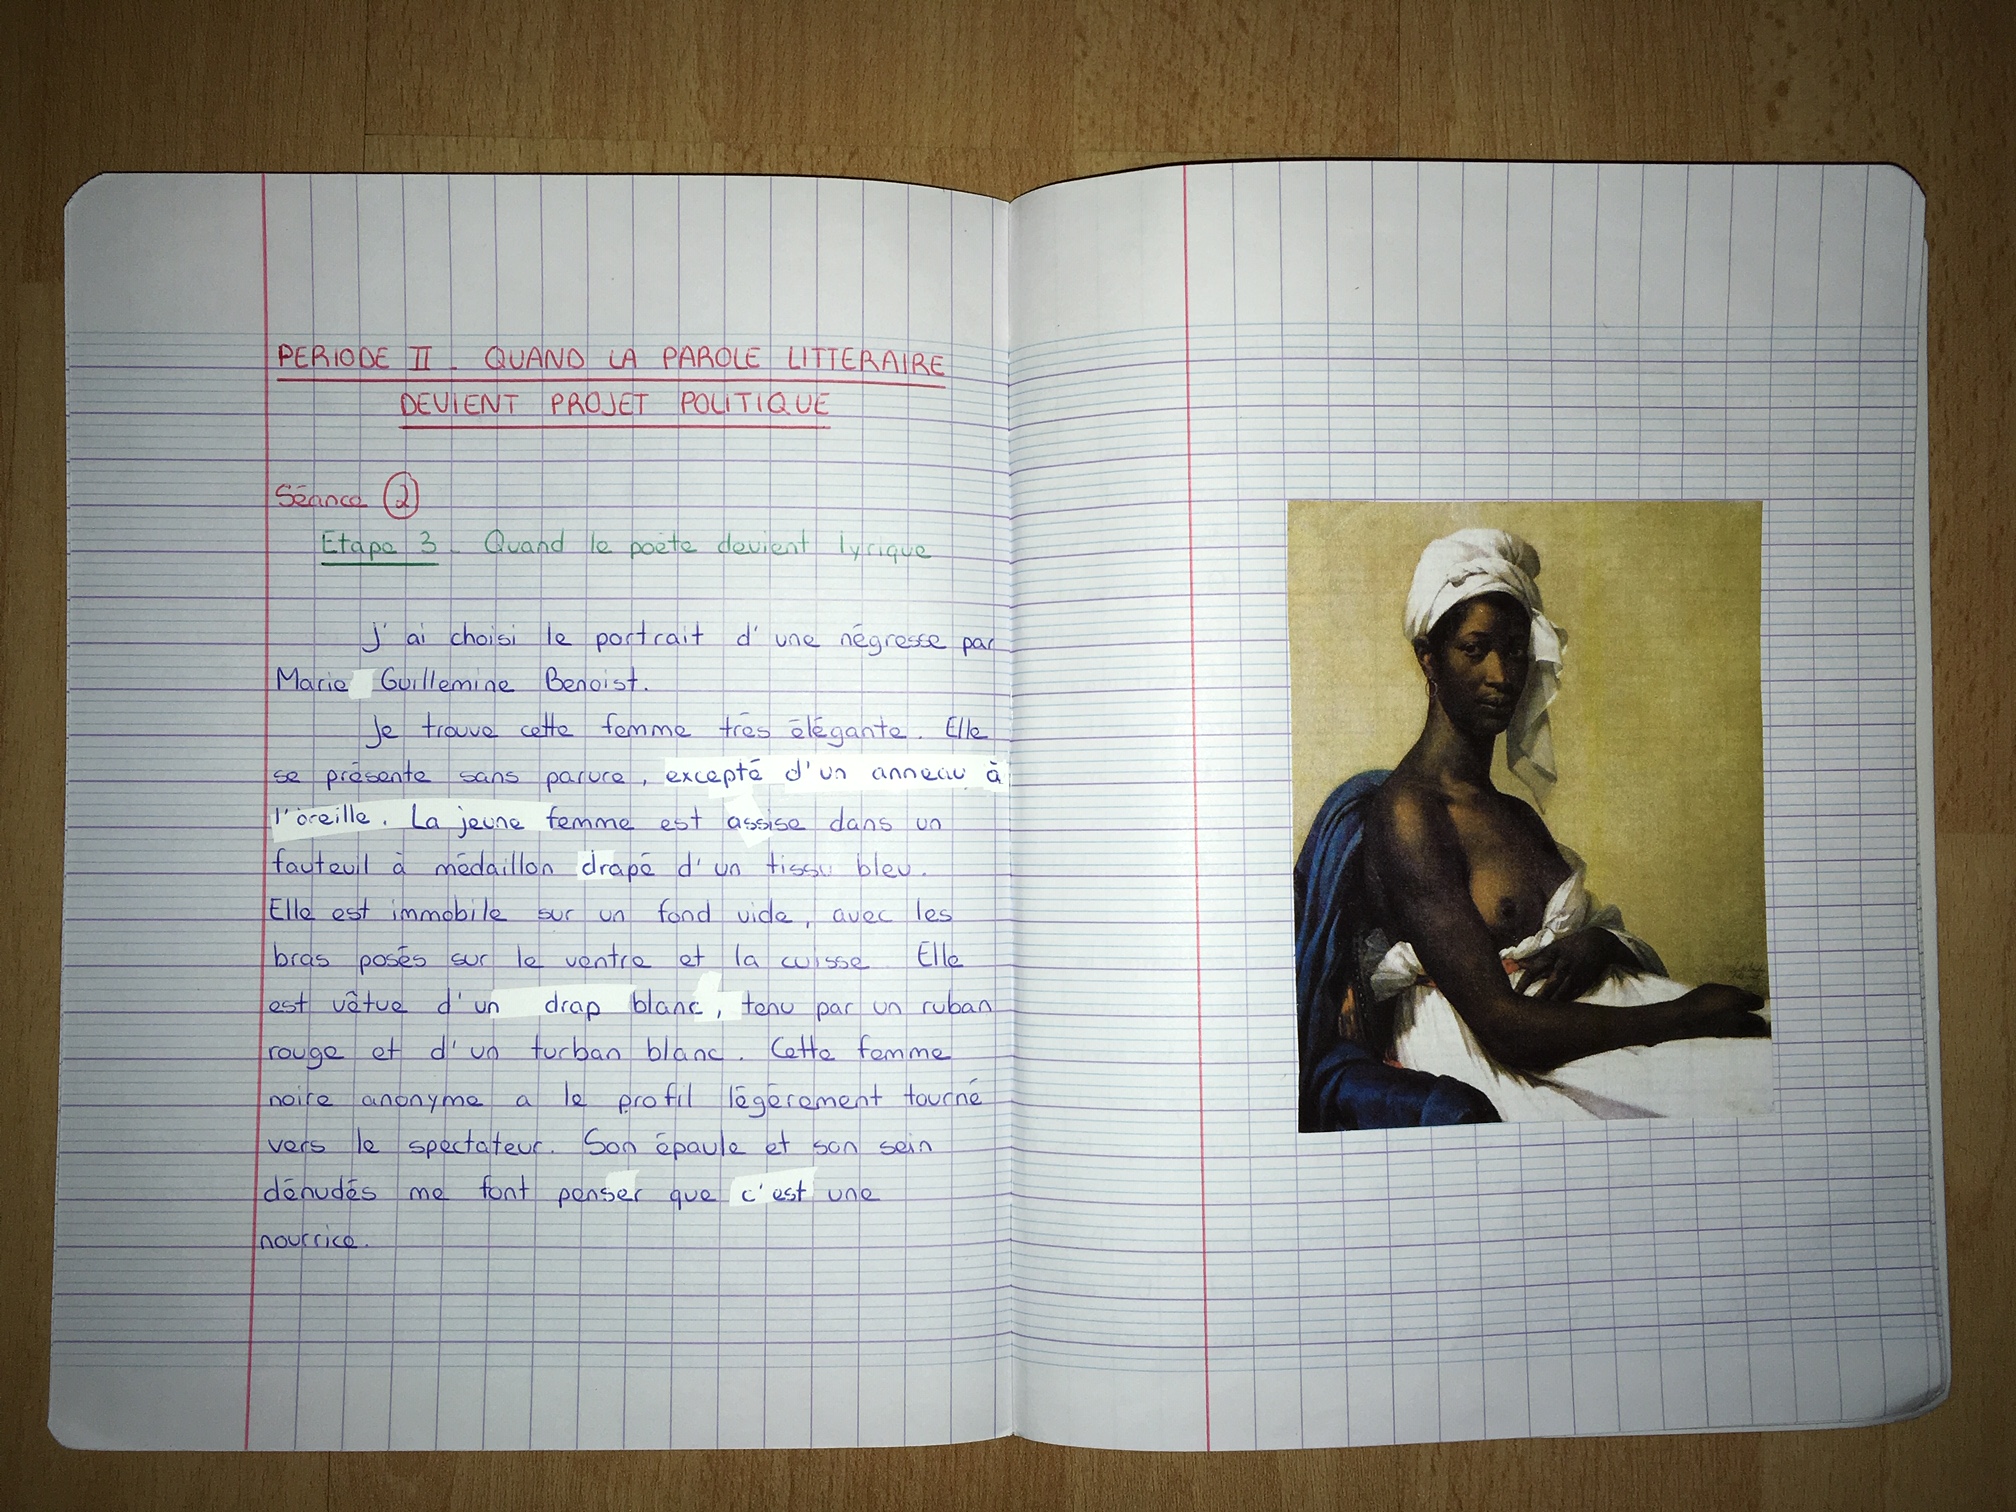 PERIODE II - QUAND LA PAROLE LITTERAIRE
DEVIENT PROJET POLITIQUE
Séance 2
Etape 3 - Quand le poète devient lyrique
J'ai choisi le portrait d'une négresse par
Marie Guillemine Benoist.
Je trouve cette femme très élégante. Elle
se présente sans parure, excepté d'un anneau à
l'oreille. La jeune femme est assise dans un
fauteuil à médaillon drapé d'un tissu bleu.
Elle est immobile sur un fond vide, avec les
bras posés sur le ventre et la cuisse. Elle
est vêtue d'un drap blanc, tenu par un ruban
rouge et d'un turban blanc. Cette femme
noire anonyme a le profil légèrement tourné
vers le spectateur. Son épaule et son sein
dénudés me font penser que c'est une
nourrice.